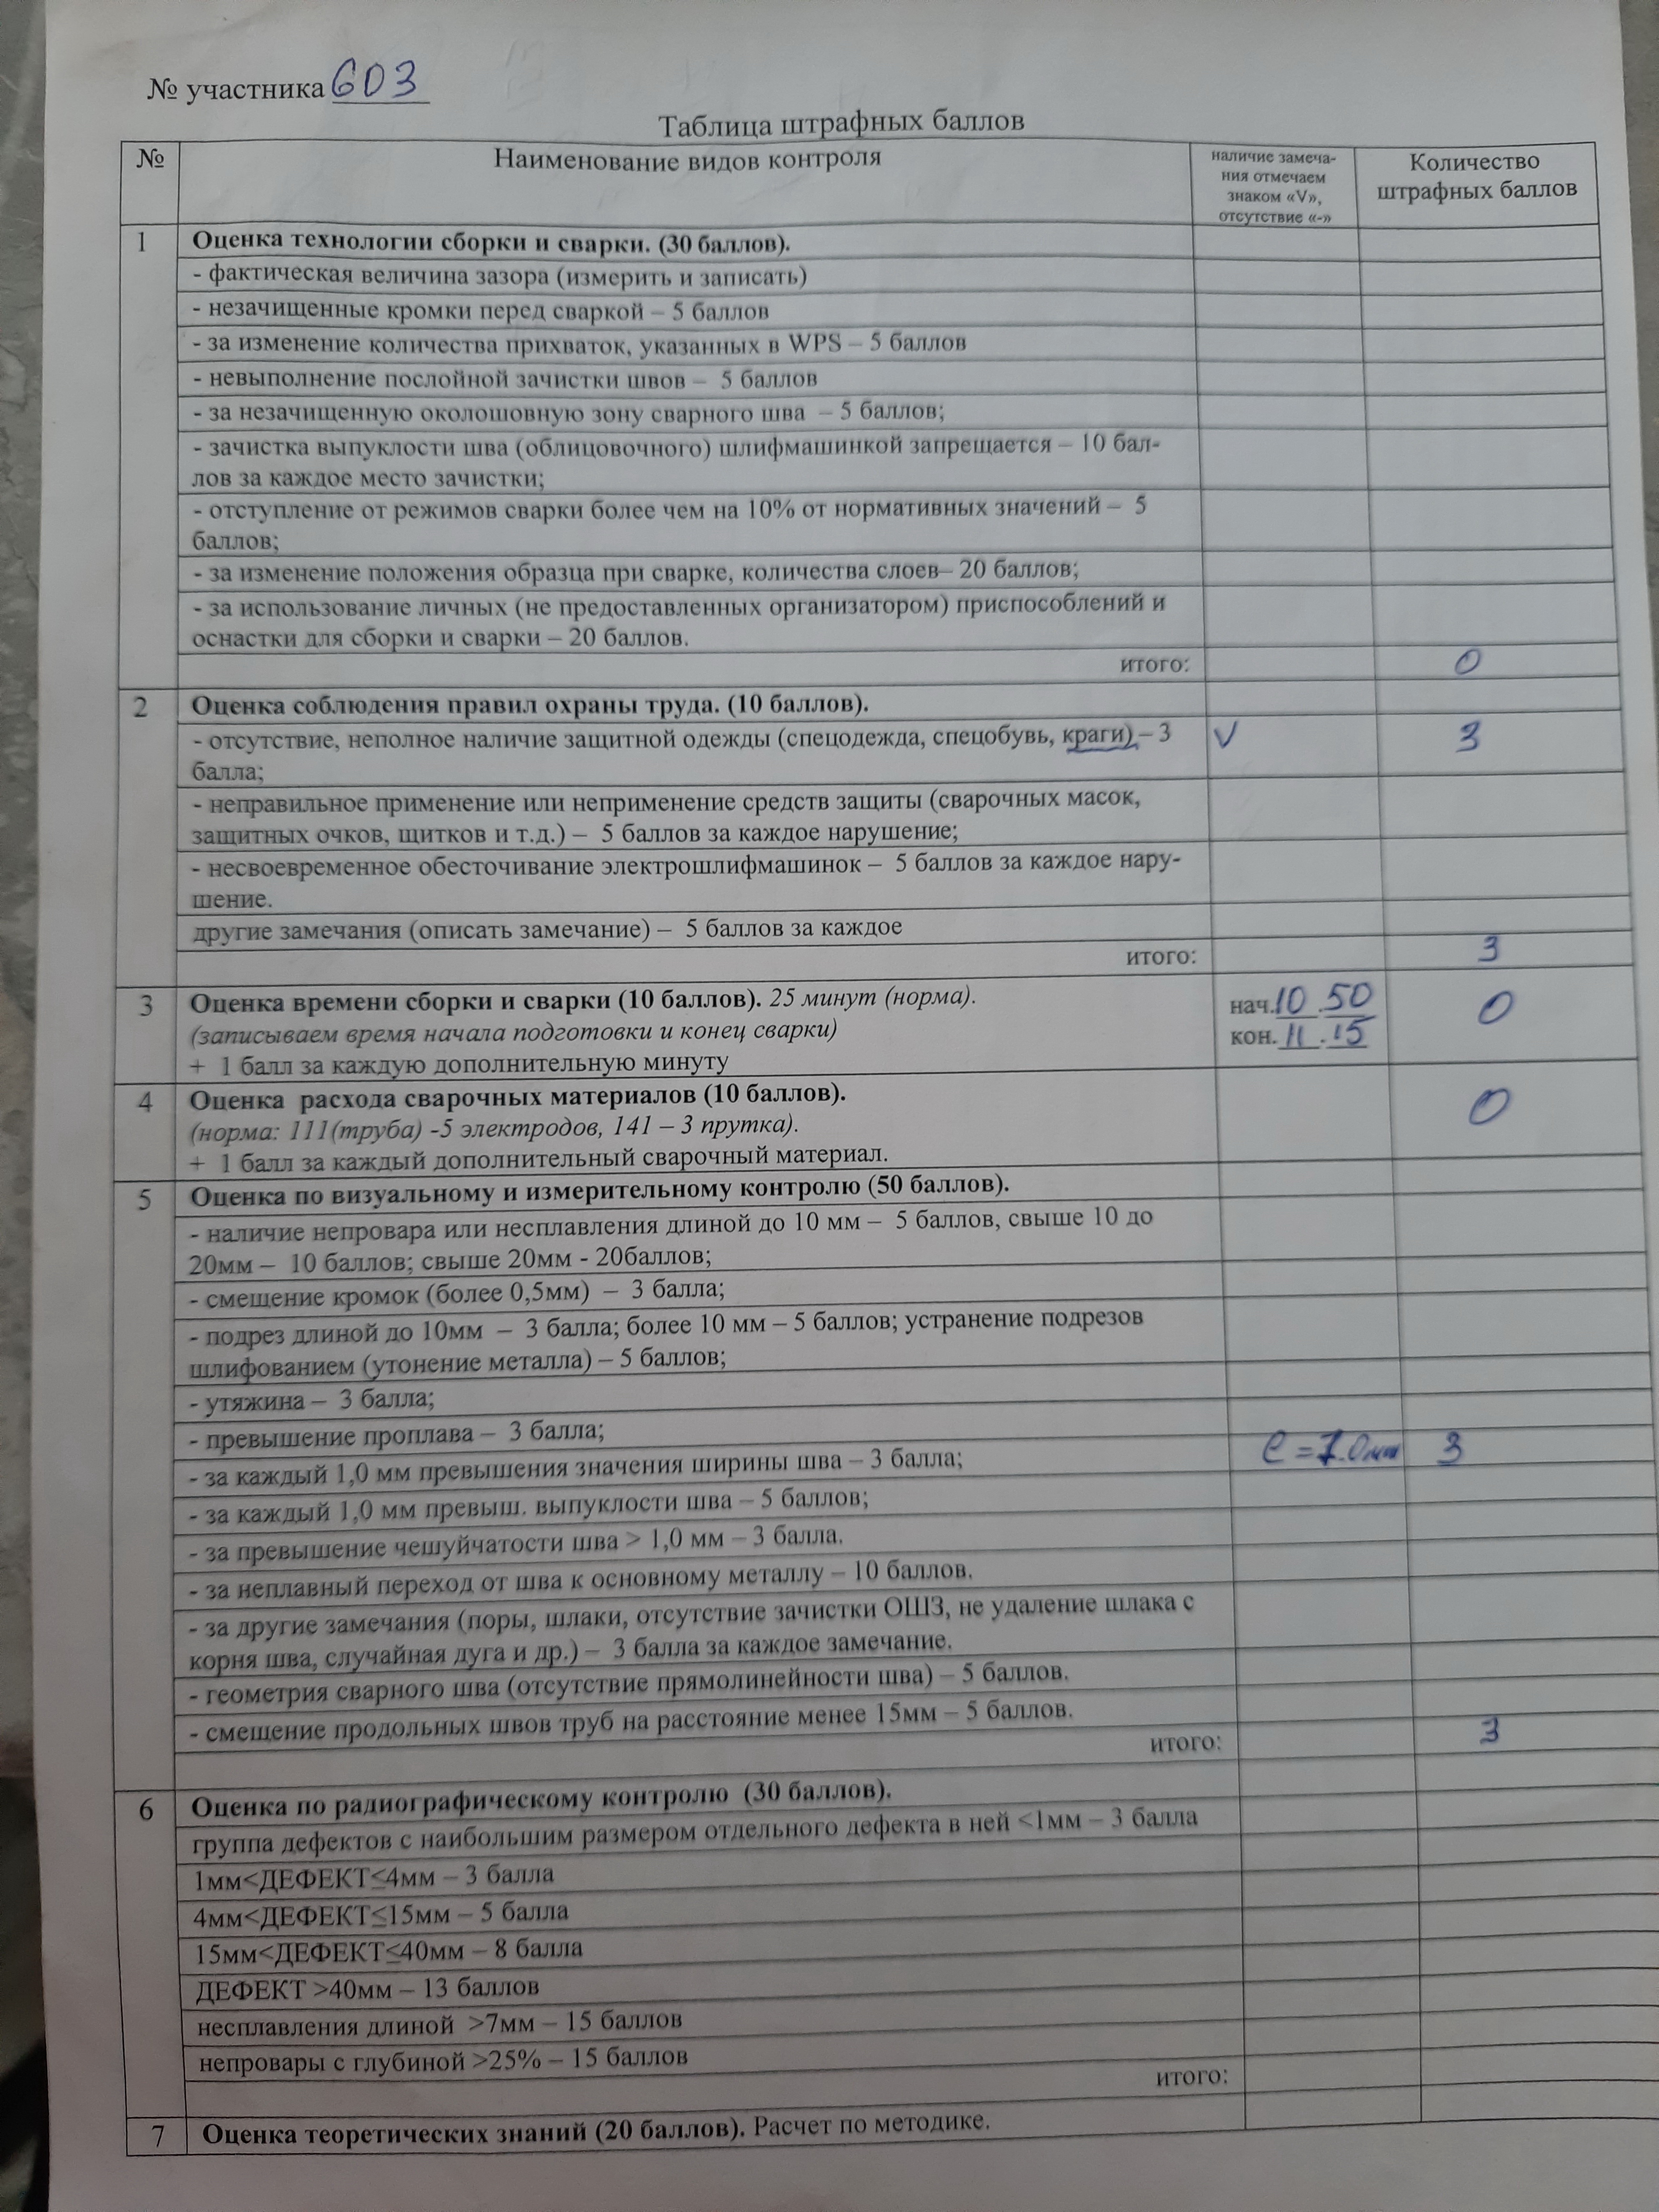 № участника 603
Таблица штрафных баллов
№ Наименование видов контроля наличие замеча-
ния отмечаем
знаком «V»,
отсутствие «-» Количество
штрафных баллов
1 Оценка технологии сборки и сварки. (30 баллов).
- фактическая величина зазора (измерить и записать)
- незачищенные кромки перед сваркой – 5 баллов
- за изменение количества прихваток, указанных в WPS – 5 баллов
- невыполнение послойной зачистки швов – 5 баллов
- за незачищенную околошовную зону сварного шва – 5 баллов;
- зачистка выпуклости шва (облицовочного) шлифмашинкой запрещается – 10 бал-
лов за каждое место зачистки;
- отступление от режимов сварки более чем на 10% от нормативных значений – 5
баллов;
- за изменение положения образца при сварке, количества слоев– 20 баллов;
- за использование личных (не предоставленных организатором) приспособлений и
оснастки для сборки и сварки – 20 баллов.
итого: 0
2 Оценка соблюдения правил охраны труда. (10 баллов).
- отсутствие, неполное наличие защитной одежды (спецодежда, спецобувь, краги) – 3 V 3
балла;
- неправильное применение или неприменение средств защиты (сварочных масок,
защитных очков, щитков и т.д.) – 5 баллов за каждое нарушение;
- несвоевременное обесточивание электрошлифмашинок – 5 баллов за каждое нару-
шение.
другие замечания (описать замечание) – 5 баллов за каждое
итого: 3
3 Оценка времени сборки и сварки (10 баллов). 25 минут (норма). нач. 10.50 0
(записываем время начала подготовки и конец сварки) кон. 11.15
+ 1 балл за каждую дополнительную минуту
4 Оценка расхода сварочных материалов (10 баллов). 0
(норма: 111(труба) -5 электродов, 141 – 3 прутка).
+ 1 балл за каждый дополнительный сварочный материал.
5 Оценка по визуальному и измерительному контролю (50 баллов).
- наличие непровара или несплавления длиной до 10 мм – 5 баллов, свыше 10 до
20мм – 10 баллов; свыше 20мм - 20баллов;
- смещение кромок (более 0,5мм) – 3 балла;
- подрез длиной до 10мм – 3 балла; более 10 мм – 5 баллов; устранение подрезов
шлифованием (утонение металла) – 5 баллов;
- утяжина – 3 балла;
- превышение проплава – 3 балла;
- за каждый 1,0 мм превышения значения ширины шва – 3 балла; e = 7.0мм 3
- за каждый 1,0 мм превыш. выпуклости шва – 5 баллов;
- за превышение чешуйчатости шва > 1,0 мм – 3 балла.
- за неплавный переход от шва к основному металлу – 10 баллов.
- за другие замечания (поры, шлаки, отсутствие зачистки ОШЗ, не удаление шлака с
корня шва, случайная дуга и др.) – 3 балла за каждое замечание.
- геометрия сварного шва (отсутствие прямолинейности шва) – 5 баллов.
- смещение продольных швов труб на расстояние менее 15мм – 5 баллов.
итого: 3
6 Оценка по радиографическому контролю (30 баллов).
группа дефектов с наибольшим размером отдельного дефекта в ней <1мм – 3 балла
1мм<ДЕФЕКТ≤4мм – 3 балла
4мм<ДЕФЕКТ≤15мм – 5 балла
15мм<ДЕФЕКТ≤40мм – 8 балла
ДЕФЕКТ >40мм – 13 баллов
несплавления длиной >7мм – 15 баллов
непровары с глубиной >25% – 15 баллов
итого:
7 Оценка теоретических знаний (20 баллов). Расчет по методике.